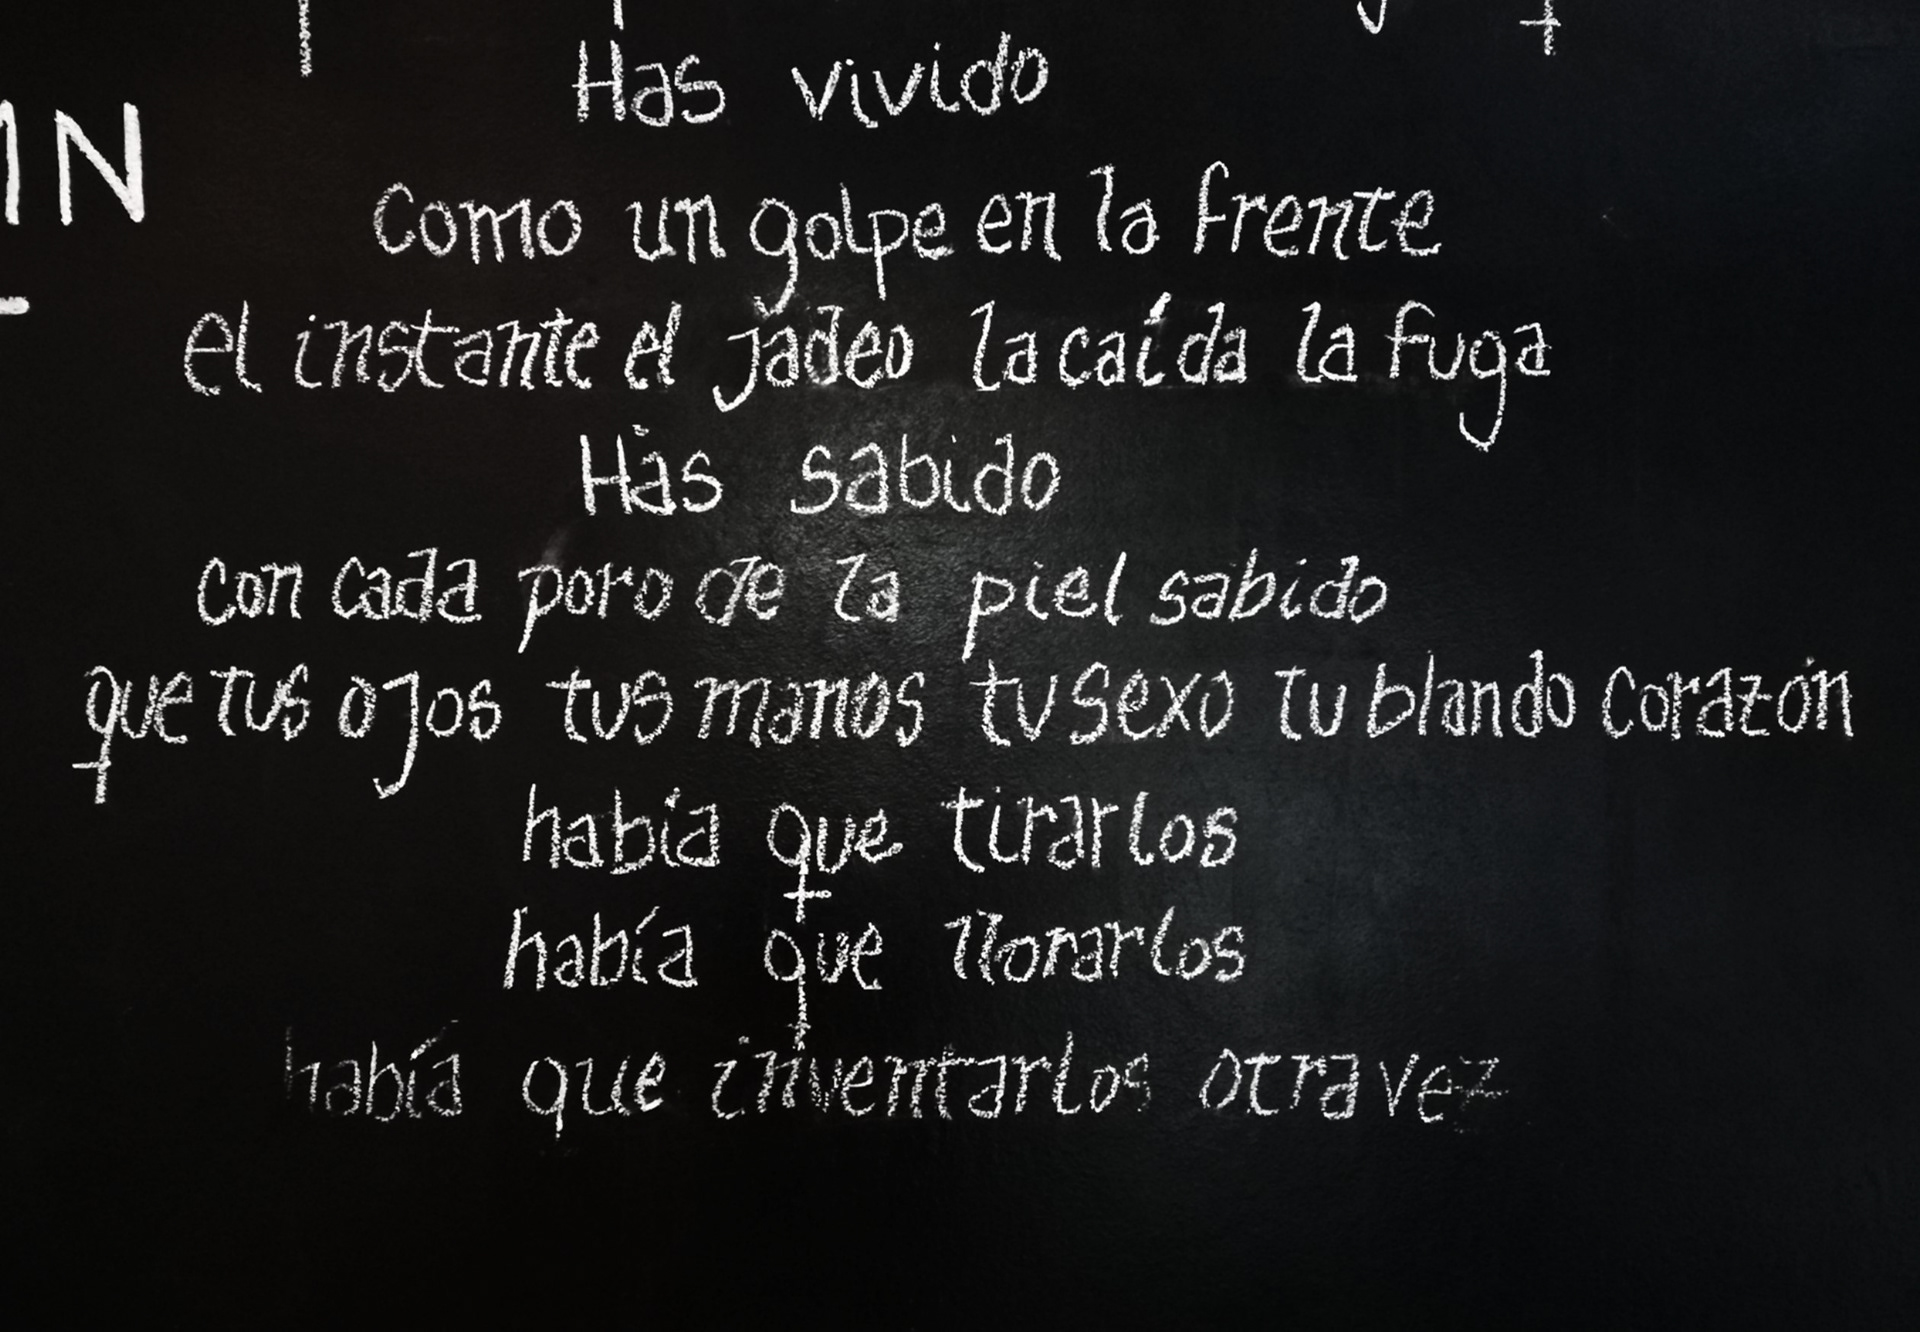 Has vivido
N
como un golpe en la frente
el instante el jadeo la caída la fuga
Has sabido
con cada poro de la piel sabido
que tus ojos tus manos tu sexo tu blando corazón
había que tirarlos
había que llorarlos
había que inventarlos otra vez